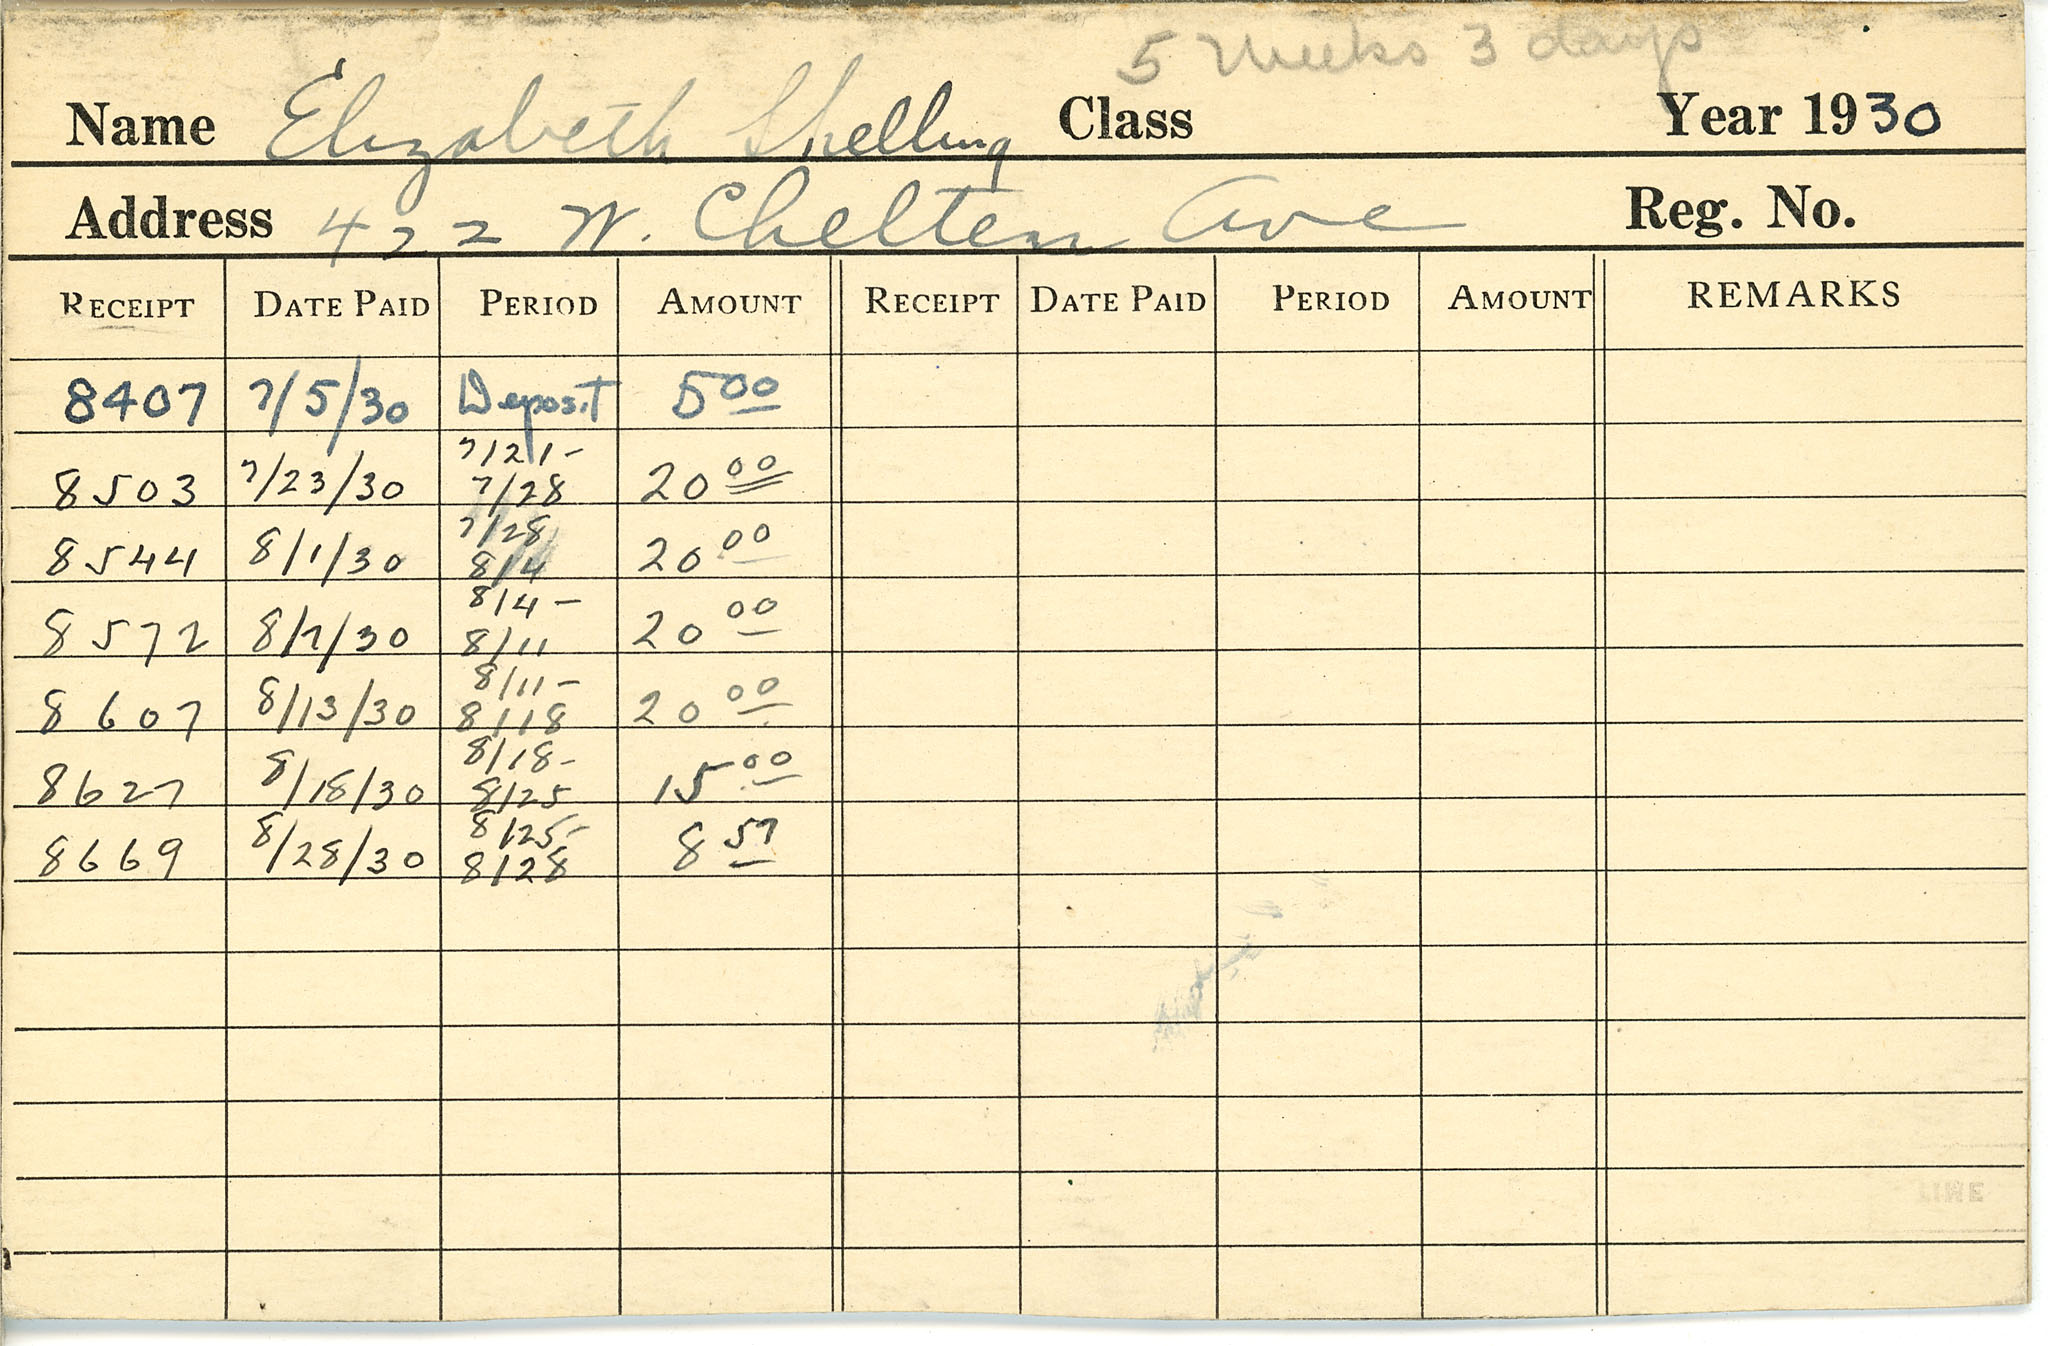 5 Weeks 3 days
Name Elizabeth Shelling Class Year 1930
Address 422 W. Chelten Ave Reg. No.
RECEIPT DATE PAID PERIOD AMOUNT RECEIPT DATE PAID PERIOD AMOUNT REMARKS
8407 7/5/30 Deposit 5 00
7/21-
8503 7/23/30 7/28 20 00
7/28
8544 8/1/30 8/4 20 00
8/4-
8572 8/7/30 8/11 20 00
8/11-
8607 8/13/30 8/18 20 00
8/18-
8627 8/18/30 8/25 15 00
8/25-
8669 8/28/30 8/28 8 57
LINE